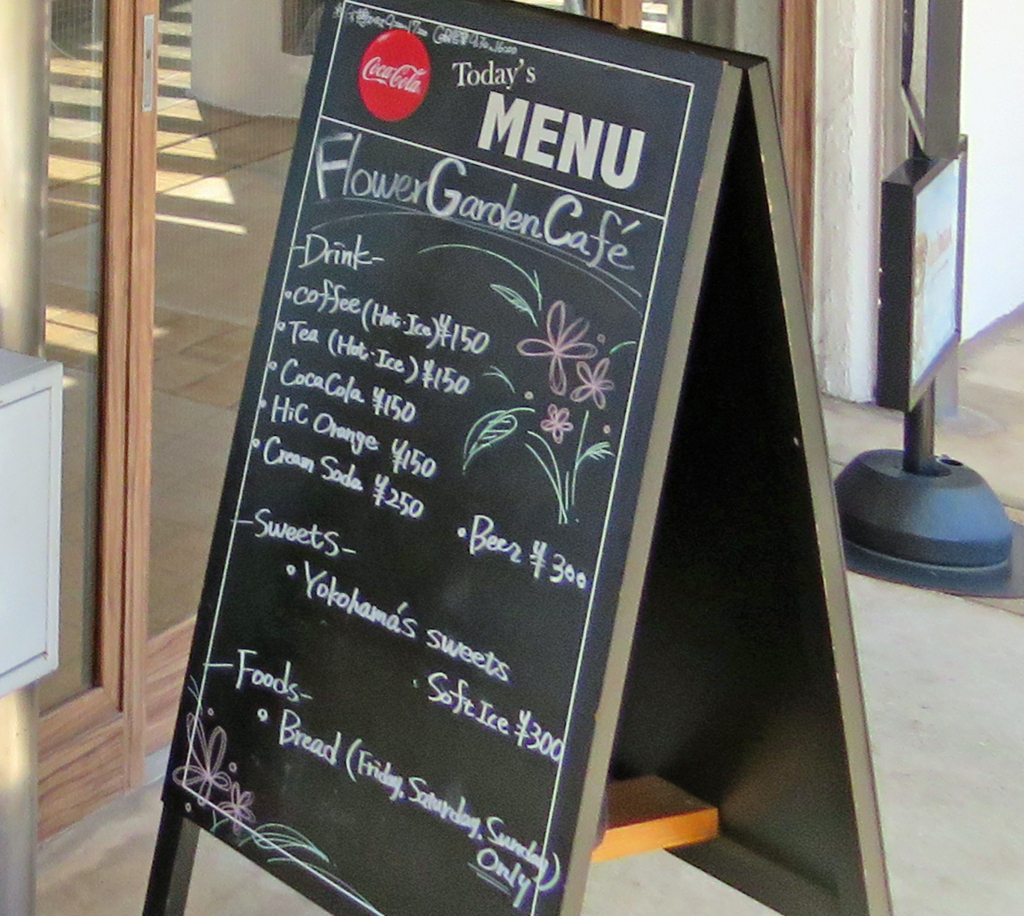 Coca-Cola
Today's
MENU
Flower Garden Café
-Drink-
• coffee (Hot・Ice) ¥150
• Tea (Hot・Ice) ¥150
• CocaCola ¥150
• HiC Orange ¥150
• Cream Soda ¥250
• Beer ¥300
-Sweets-
• Yokohama's sweets
• Soft Ice ¥300
-Foods-
• Bread (Friday, Saturday, Sunday)
Only